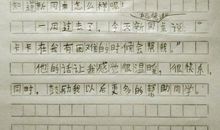 知道新同桌怎么样呢！
一周过去了，今天新同桌说：“
卡卡在我有困难的时候会帮我。”
他的话让我感觉很温暖，很快乐！
同时，鼓励我以后更多的帮助同学！